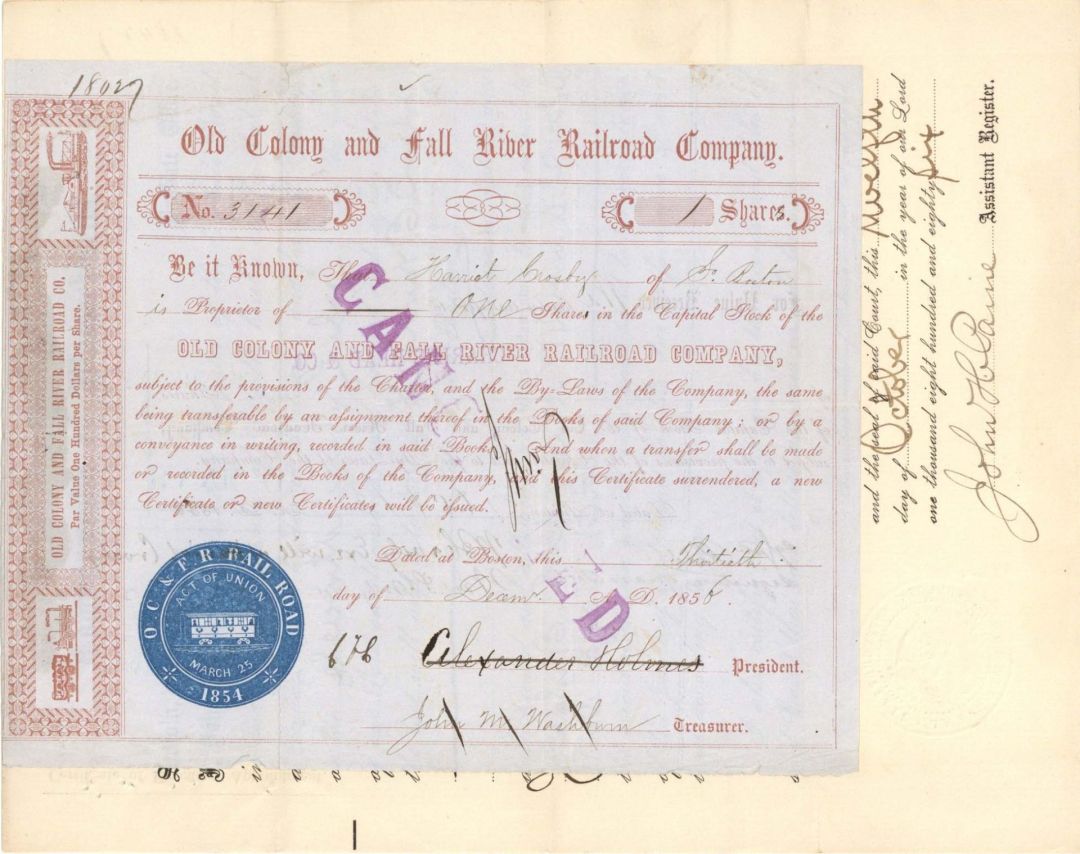 18027
Old Colony and Fall River Railroad Company.
No. 3141
1 Shares.
Be it Known, That Harriet Crosby of
is Proprietor of ONE Shares in the Capital Stock of the
OLD COLONY AND FALL RIVER RAILROAD COMPANY,
subject to the provisions of the Charter, and the By-Laws of the Company, the same
being transferable by an assignment thereof in the Books of said Company; or by a
conveyance in writing, recorded in said Books. And when a transfer shall be made
or recorded in the Books of the Company, and this Certificate surrendered, a new
Certificate or new Certificates will be issued.
CANCELLED
Dated at Boston, this Thirtieth
day of Decemr. A. D. 1856.
678 Alexander Holmes President.
John M. Washburn Treasurer.
O. C. & F. R. RAIL ROAD
ACT OF UNION
MARCH 25
1854
OLD COLONY AND FALL RIVER RAILROAD CO.
Par Value One Hundred Dollars per Share.
and the seal of said Court, this twelfth
day of October in the year of our Lord
one thousand eight hundred and eighty six
John H Paine Assistant Register.